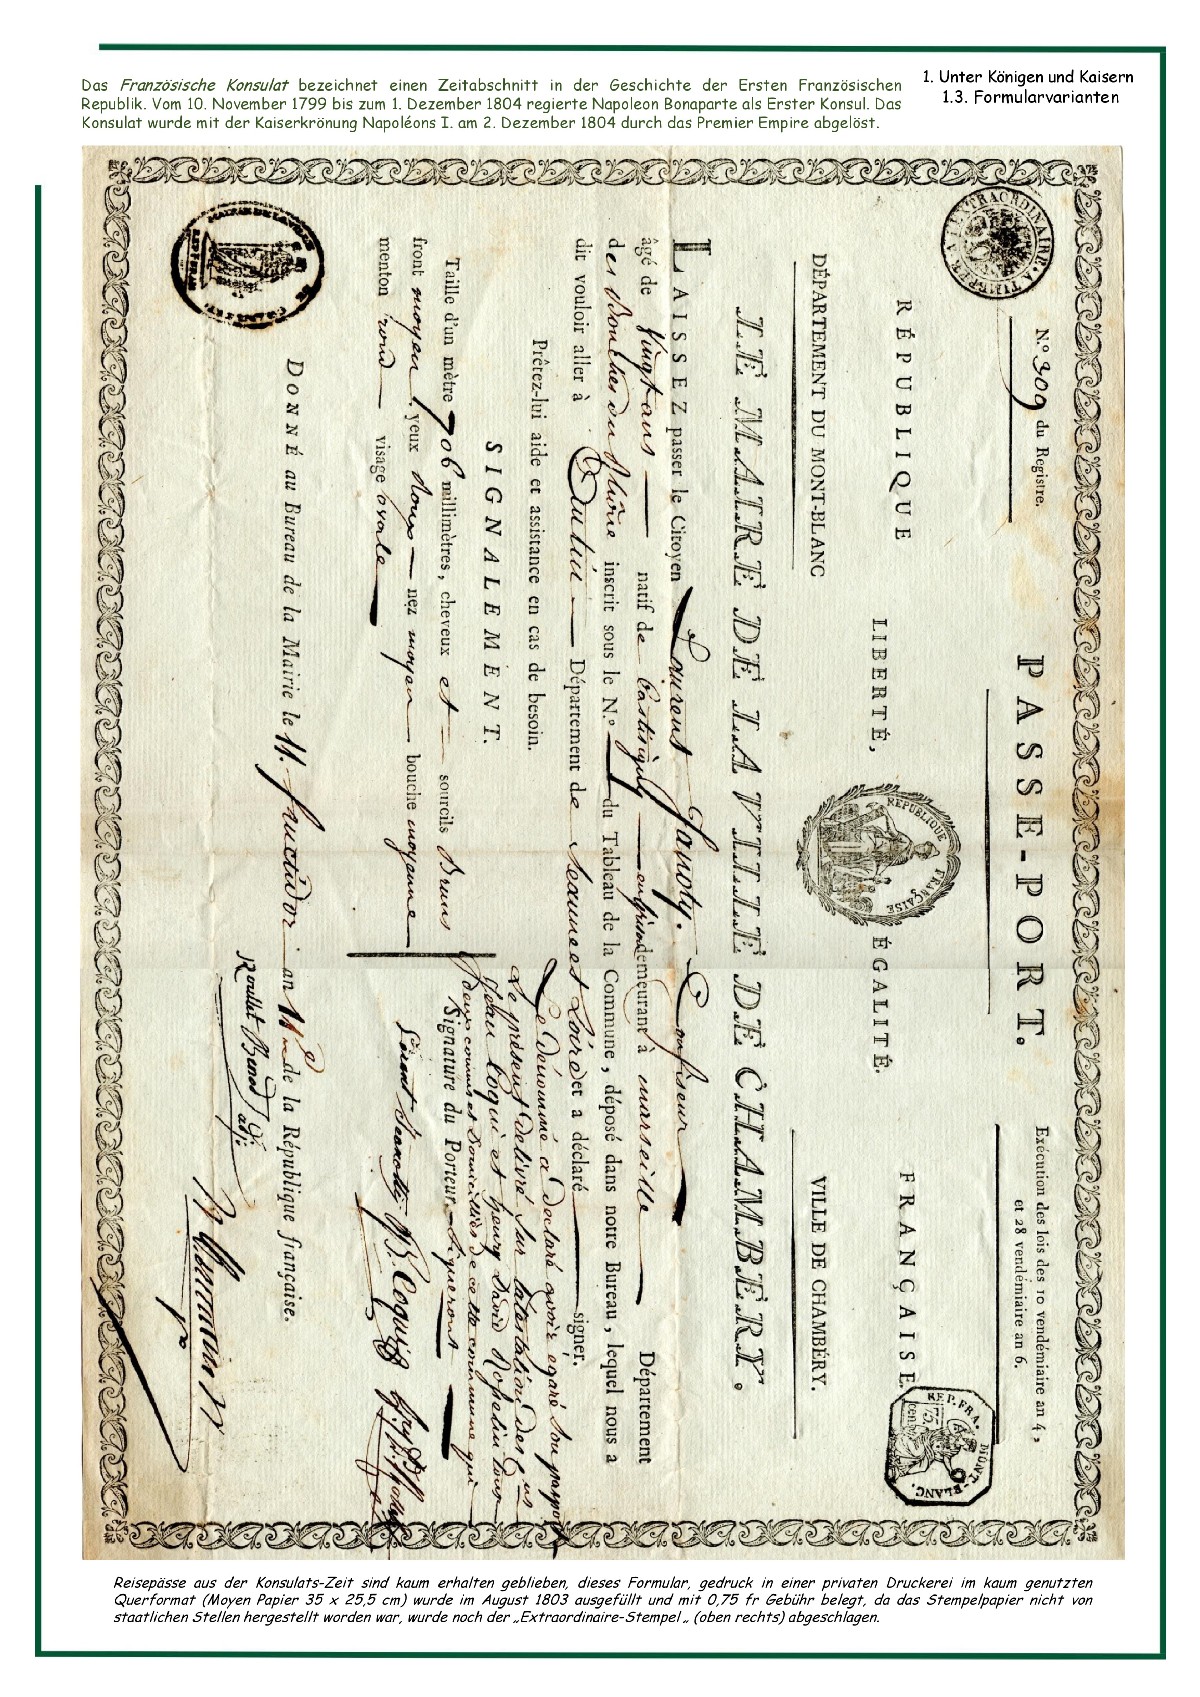 Das Französische Konsulat bezeichnet einen Zeitabschnitt in der Geschichte der Ersten Französischen
Republik. Vom 10. November 1799 bis zum 1. Dezember 1804 regierte Napoleon Bonaparte als Erster Konsul. Das
Konsulat wurde mit der Kaiserkrönung Napoléons I. am 2. Dezember 1804 durch das Premier Empire abgelöst.
1. Unter Königen und Kaisern
1.3. Formularvarianten
N.º 309 du Registre.
PASSE-PORT.
Exécution des lois des 10 vendémiaire an 4,
et 28 vendémiaire an 6.
RÉPUBLIQUE FRANÇAISE.
LIBERTÉ, ÉGALITÉ.
RÉPUBLIQUE FRANÇAISE
REP. FRA. MONT-BLANC.
75 cen
DÉPARTEMENT DU MONT-BLANC
VILLE DE CHAMBÉRY.
LE MAIRE DE LA VILLE DE CHAMBERY.
LAISSEZ passer le Citoyen Laurent Janoty. Confiseur
âgé de Vingt ans natif de demeurant à marseille Département
des Bouches du Rhône inscrit sous le N.º du Tableau de la Commune, déposé dans notre Bureau, lequel nous a
dit vouloir aller à Autun Département de Seaune et Loire et a déclaré signer.
Prêtez-lui aide et assistance en cas de besoin.
SIGNALEMENT.
Taille d'un mètre 706 millimètres, cheveux et sourcils Bruns
front moyen yeux nez moyen bouche moyenne
menton rond visage ovale
Le dénommé a déclaré avoir egaré son passport
Le présent délivré sur latestation des C.ns
Jean Coqui et henry David tous
deux connus et Domiciliés de cette commune qui
Signature du Porteur, signeront
DONNÉ au Bureau de la Mairie le 11. fructidor an 11 de la République française.
Reisepässe aus der Konsulats-Zeit sind kaum erhalten geblieben, dieses Formular, gedruck in einer privaten Druckerei im kaum genutzten
Querformat (Moyen Papier 35 x 25,5 cm) wurde im August 1803 ausgefüllt und mit 0,75 fr Gebühr belegt, da das Stempelpapier nicht von
staatlichen Stellen hergestellt worden war, wurde noch der „Extraordinaire-Stempel „ (oben rechts) abgeschlagen.